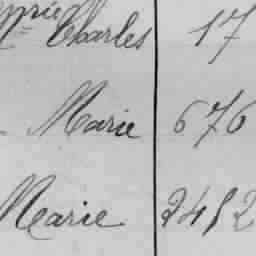 Charles 17
Marie 676
Marie 2452